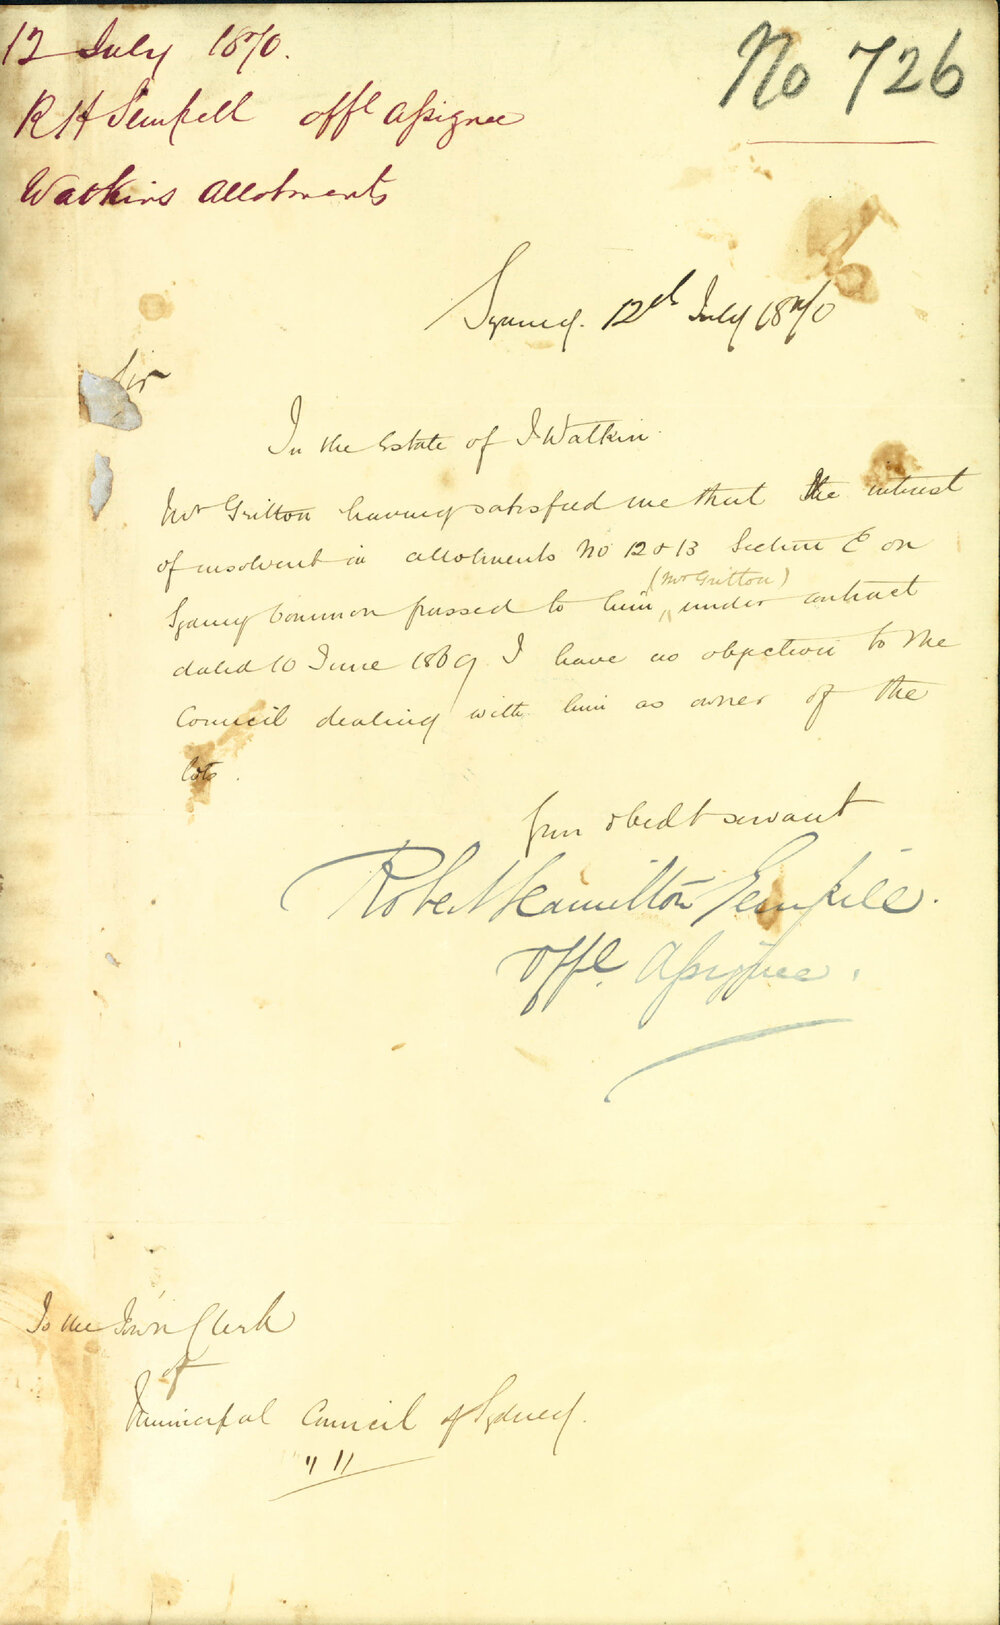 12 July 1870.
No 726
R H Sempill offl Assignee
Watkins Allotments
Sydney. 12th July 1870
Sir
In the Estate of J Watkin.
Mr Gritton having satisfied me that the interest
of insolvent in allotments No 12 & 13 Section E on
Sydney Common passed to him (Mr Gritton) under contract
dated 10 June 1869 I have no objection to the
Council dealing with him as owner of the
lots.
Your obedt servant
Robert Hamilton Sempill.
Offl. Assignee.
To the Town Clerk
of
Municipal Council of Sydney.
" "